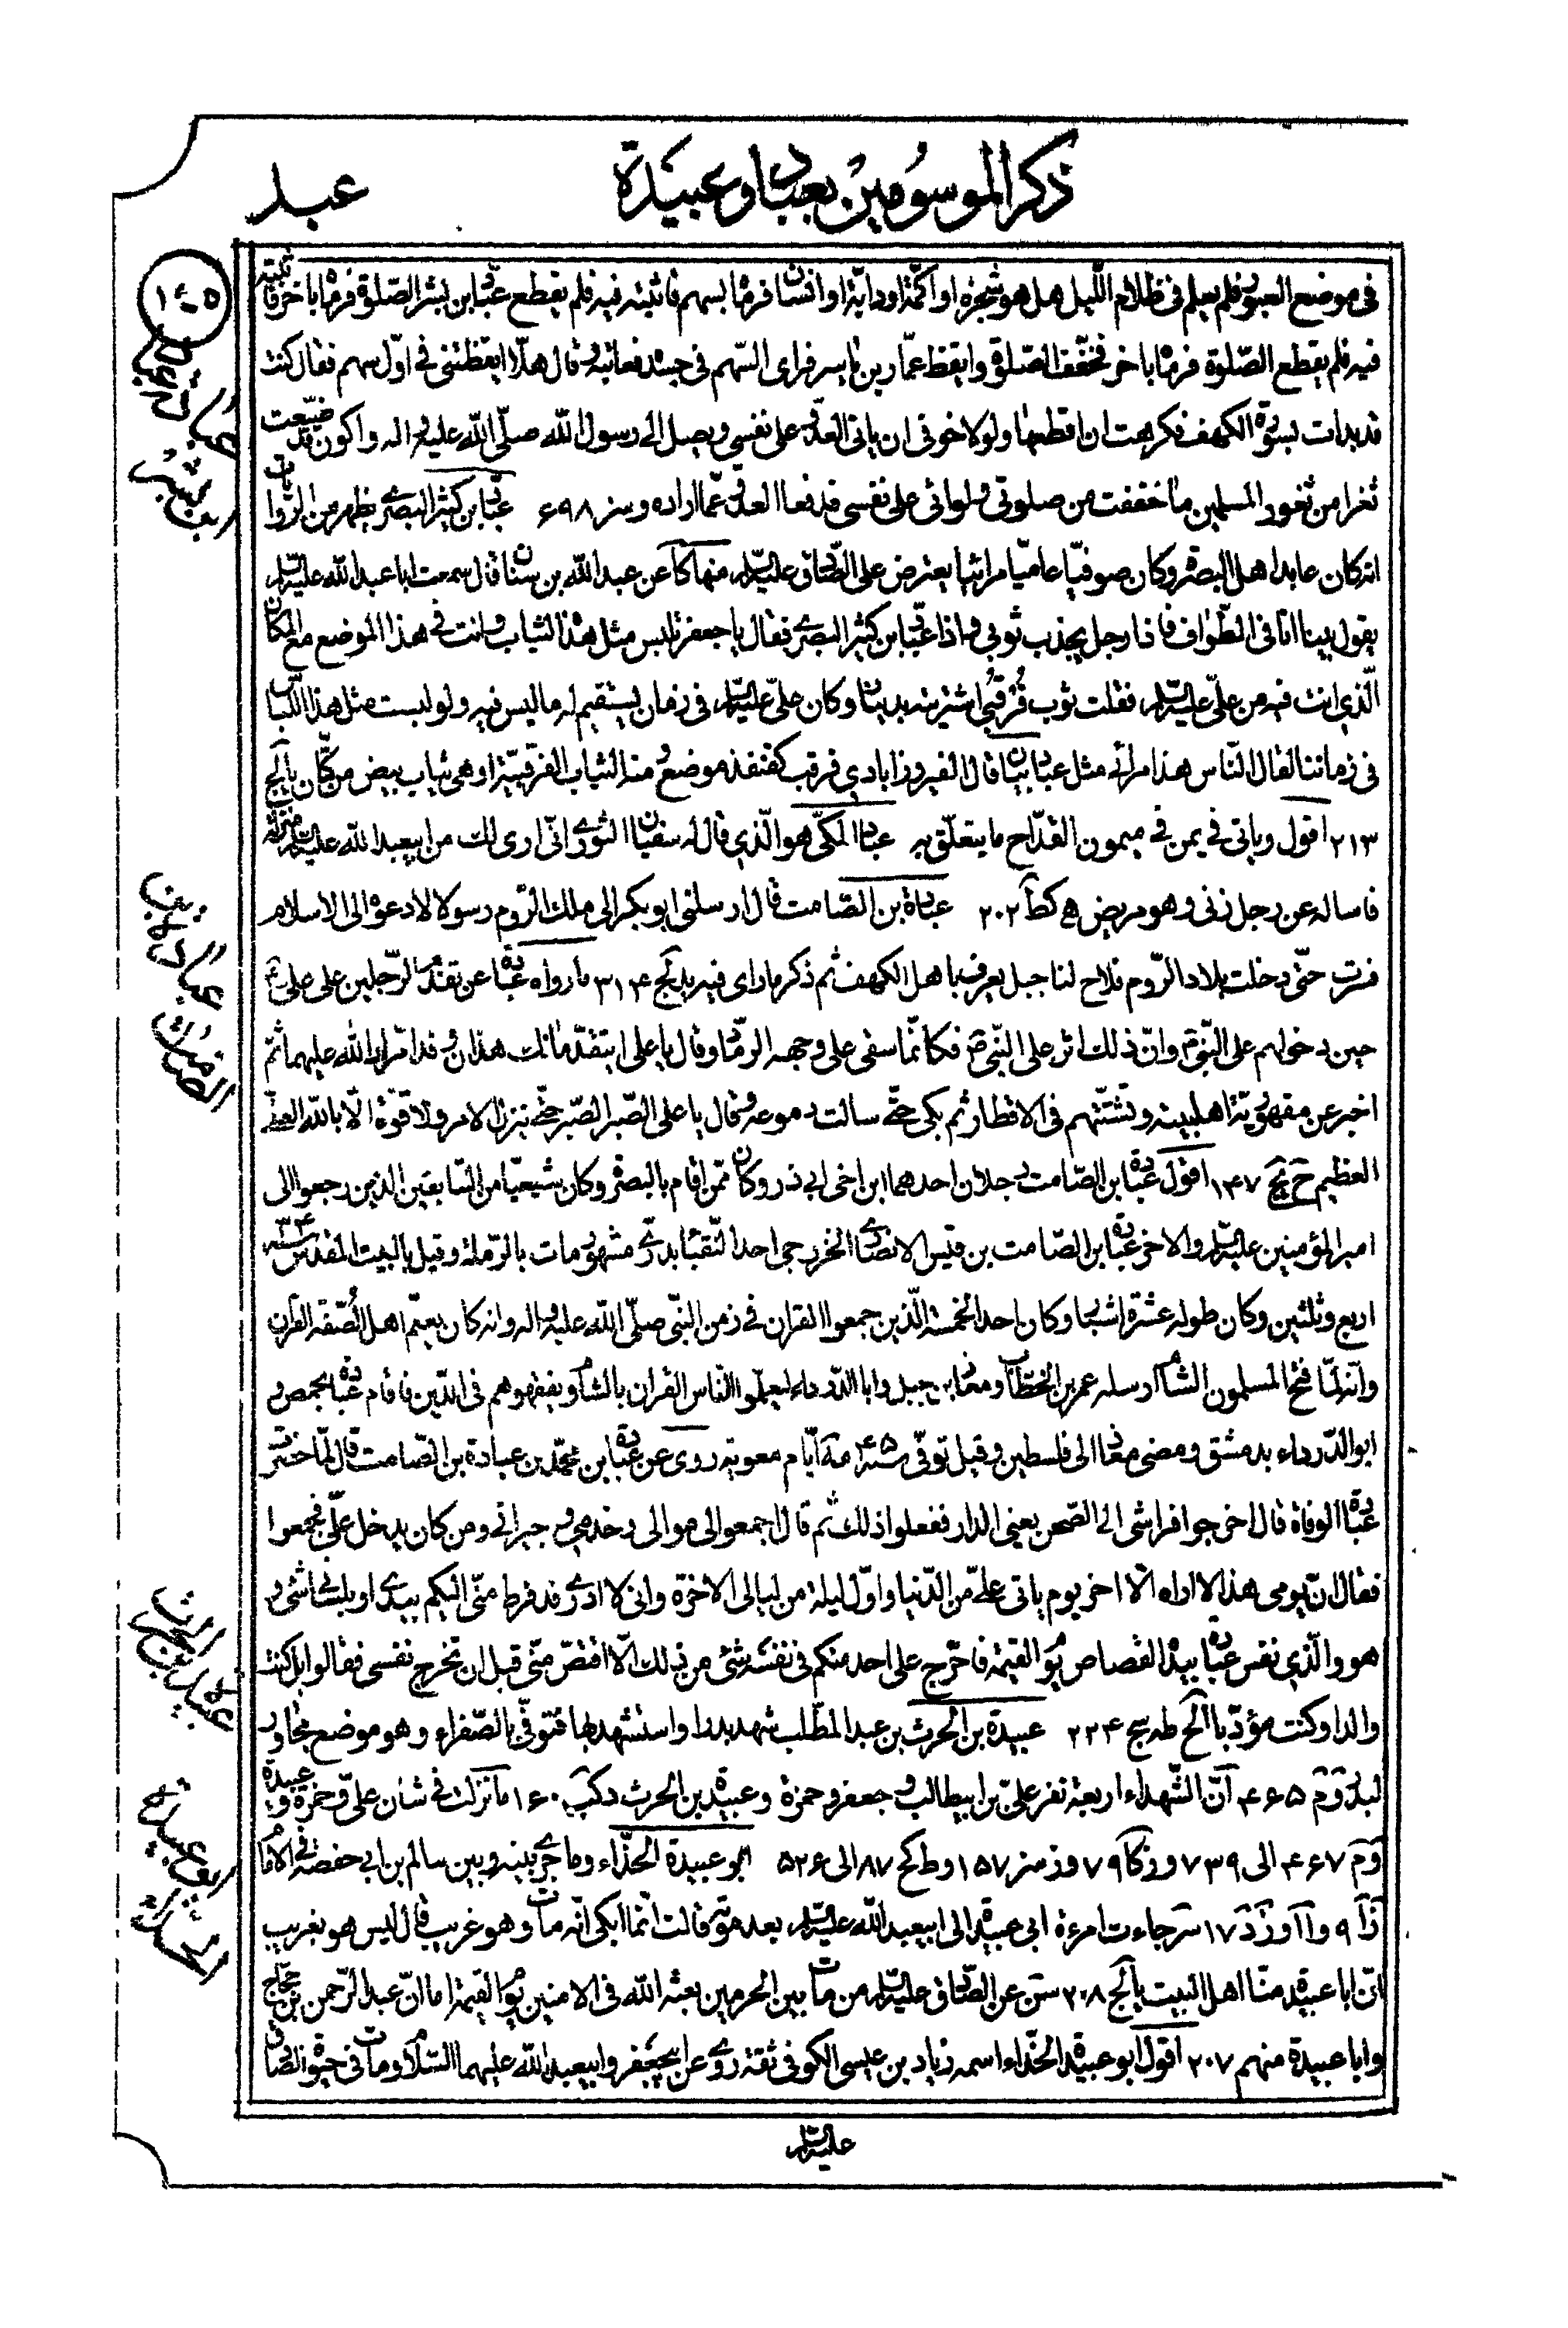 ذكر الموسومين بعباد وعبيدة
عبد
١٤٠٥
فى موضع العبور فلم يعلم فى ظلام اللّيل هل هو شجرة او اكمّة او دابّة او انسان فرماه بسهم فاثبته فيه فلم يقطع عبّاد بن بشر الصّلوة فرماه باخر فاثبته
فيه فلم يقطع الصّلوة فرماه باخر فخفّف الصّلوة وايقظ عمّار بن ياسر فراى السّهم فى جسده فعاتبه وقال هلّا ايقظتنى فى اوّل سهم فقال كنت
قد بدات بسورة الكهف فكرهت ان اقطعها ولولا خوفى ان ياتى العدوّ على نفسى ويصل الى رسول الله صلّى الله عليه واله واكون قد ضيّعت
ثغرا من ثغور المسلمين ما خففت من صلوتى ولو اتى على نفسى فدفعا العدوّ عمّا اراده وسز ٦٩٨ عبّاد بن كثير البصرى يظهر من الروايات
انه كان عابد اهل البصرة وكان صوفيّا عاميّا مرائيا يعترض على الصّادق عليه السّلام منها كا عن عبد الله بن سنان قال سمعت ابا عبد الله عليه السّلام
يقول بينا انا فى الطّواف فاذا رجل يجذب ثوبى واذا عبّاد بن كثير البصرى فقال يا جعفر تلبس مثل هذه الثياب وانت فى هذا الموضع مع المكان
الّذى انت فيه من علىّ عليه السّلام فقلت ثوب فُرْقُبى اشتريته بدينار وكان علىّ عليه السّلام فى زمان يستقيم له ما ليس فيه ولو لبست مثل هذا اللّباس
فى زماننا لقال النّاس هذا مرائى مثل عباد بيان قال الفيروزابادى فرقب كقنفذ موضع ومنه الثياب الفرقبيّة او هى ثياب بيض من كتّان يا لج
٢١٣ اقول وياتى فى يمن فى ميمون القدّاح ما يتعلّق به عباد المكّى هو الّذى قال له سفيان الثورى انّى ارى لك من ابيعبد الله عليه السّلام منزلة
فاساله عن رجل زنى وهو مريض ه كط ٢٠٢ عبادة بن الصّامت قال ارسلنى ابوبكر الى ملك الرّوم رسولا لادعوه الى الاسلام
فسرت حتّى دخلت بلاد الرّوم فلاح لنا جبل يعرف باهل الكهف ثم ذكر ما راى فيه يد لج ٣١٤ ما رواه عبادة عن تقدّم الرّجلين على علىّ ع
حين دخولهم على النّبىّ وانّ ذلك اثر على النّبىّ ص فكانّما سفى على وجهه الرّماد وقال يا على ايتقدّمانك هذان وقد امّرك الله عليهما ثم
اخبر عن مقهوريّة اهلبيته وتشتّتهم فى الاقطار ثم بكى حتّى سالت دموعه وقال يا على الصّبر الصّبر حتّى ينزل الامر ولا قوّة الّا بالله العلىّ
العظيم ح يج ١٤٧ اقول عبادة بن الصّامت رجلان احدهما ابن اخى ابى ذر وكان ممّن اقام بالبصرة وكان شيعيّا من السّابقين الذين رجعوا الى
امير المؤمنين عليه السّلام والاخر عبادة بن الصّامت بن قيس الانصارى الخزرجى احد النّقباء بدرىّ مشهور مات بالرّملة وقيل بالبيت المقدس سنة ٣٤
اربع وثلثين وكان طوله عشرة اشبار وكان احد الخمسة الّذين جمعوا القران فى زمن النّبىّ صلّى الله عليه واله وانه كان يعلّم اهل الصّفّة القرآن
وانه لمّا فتح المسلمون الشام ارسله عمر بن الخطّاب ومعاذ بن جبل وابا الدّرداء ليعلّموا النّاس القران بالشام ويفقهوهم فى الدّين فاقام عبادة بحمص و
ابو الدّرداء بدمشق ومضى معاذ الى فلسطين وقيل توفّى سنة ٤٥ مه ايّام معوية روى عن عبادة بن محمّد بن عبادة بن الصّامت قال لمّا حضرت
عبادة الوفاة قال اخرجوا فراشى الى الصّحن يعنى الدار ففعلوا ذلك ثم قال اجمعوا لى موالى وخدمى وجيرانى ومن كان يدخل علىّ فجمعوا
فقال انّ يومى هذا لا اراه الّا اخر يوم ياتى علىّ من الدّنيا واوّل ليلة من ليالى الاخرة وانى لا ادرى قد فرط منّى اليكم بيدى او بلسانى شىء و
هو والّذى نفس عبادة بيده القصاص يوم القيمة فاحرّج على احد منكم فى نفسه شىء من ذلك الّا اقتصّ منّى قبل ان تخرج نفسى فقالوا بل كنت
والدا وكنت مؤدّبا الخ طه سج ٢٢٤ عبيدة بن الحرث بن عبد المطّلب شهد بدرا واستشهد بها فتوفّى بالصّفراء وهو موضع مجاور
لبدر وم ٤٦٥ انّ الشّهداء اربعة نفر علىّ بن ابيطالب وجعفر وحمزة وعبيدة بن الحرث د كب ١٦٠ ما نزلت فى شان علىّ وحمزة وعبيدة
وم ٤٦٧ الى ٧٣٩ وزكا ٧٩ وز سز ١٥٧ وط كح ٨٧ الى ٥٢٦ ابو عبيدة الحذّاء وما جرى بينه وبين سالم بن ابى حفصة فى الامام
زا ٩ و آا وزد ١٧ سر جاءت امرءة ابى عبيدة الى ابيعبد الله عليه السّلام بعد موته فقالت انّما ابكى انّه مات وهو غريب قال ليس هو بغريب
انّ ابا عبيدة منّا اهل البيت يا لج ٢٠٨ سن عن الصّادق عليه السّلام من مات بين الحرمين بعثه الله فى الامنين يوم القيمة اما انّ عبد الرّحمن بن حجّاج
وابا عبيدة منهم ٢٠٧ اقول ابو عبيدة الحذّاء اسمه زياد بن عيسى الكوفى ثقة روى عن ابيجعفر وابيعبد الله عليهما السّلام ومات فى حيوة الصّادق
عليه السّلام
عباد بن
الصّامت
عبيدة بن الحرث
ابو عبيدة